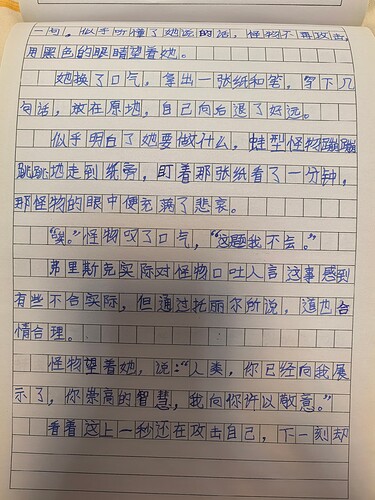 一间，似乎听懂了她说的话，怪物不再攻击，
用黑色的眼睛望着她。
她换了口气，拿出一张纸和笔，写下几
句话，放在原地，自己向后退了好远。
似乎明白了她要做什么，蛙型怪物蹦蹦
跳跳地走到纸旁，盯着那张纸看了一分钟，
那怪物的眼中便充满了悲哀。
“唉。”怪物叹了口气，“这题我不会。”
弗里斯克实际对怪物口吐人言这事感到
有些不合实际，但通过托丽尔所说，道也合
情合理。
怪物望着她，说：“人类，你已经向我展
示了，你崇高的智慧，我向你许以敬意。”
看着这上一秒还在攻击自己，下一刻却